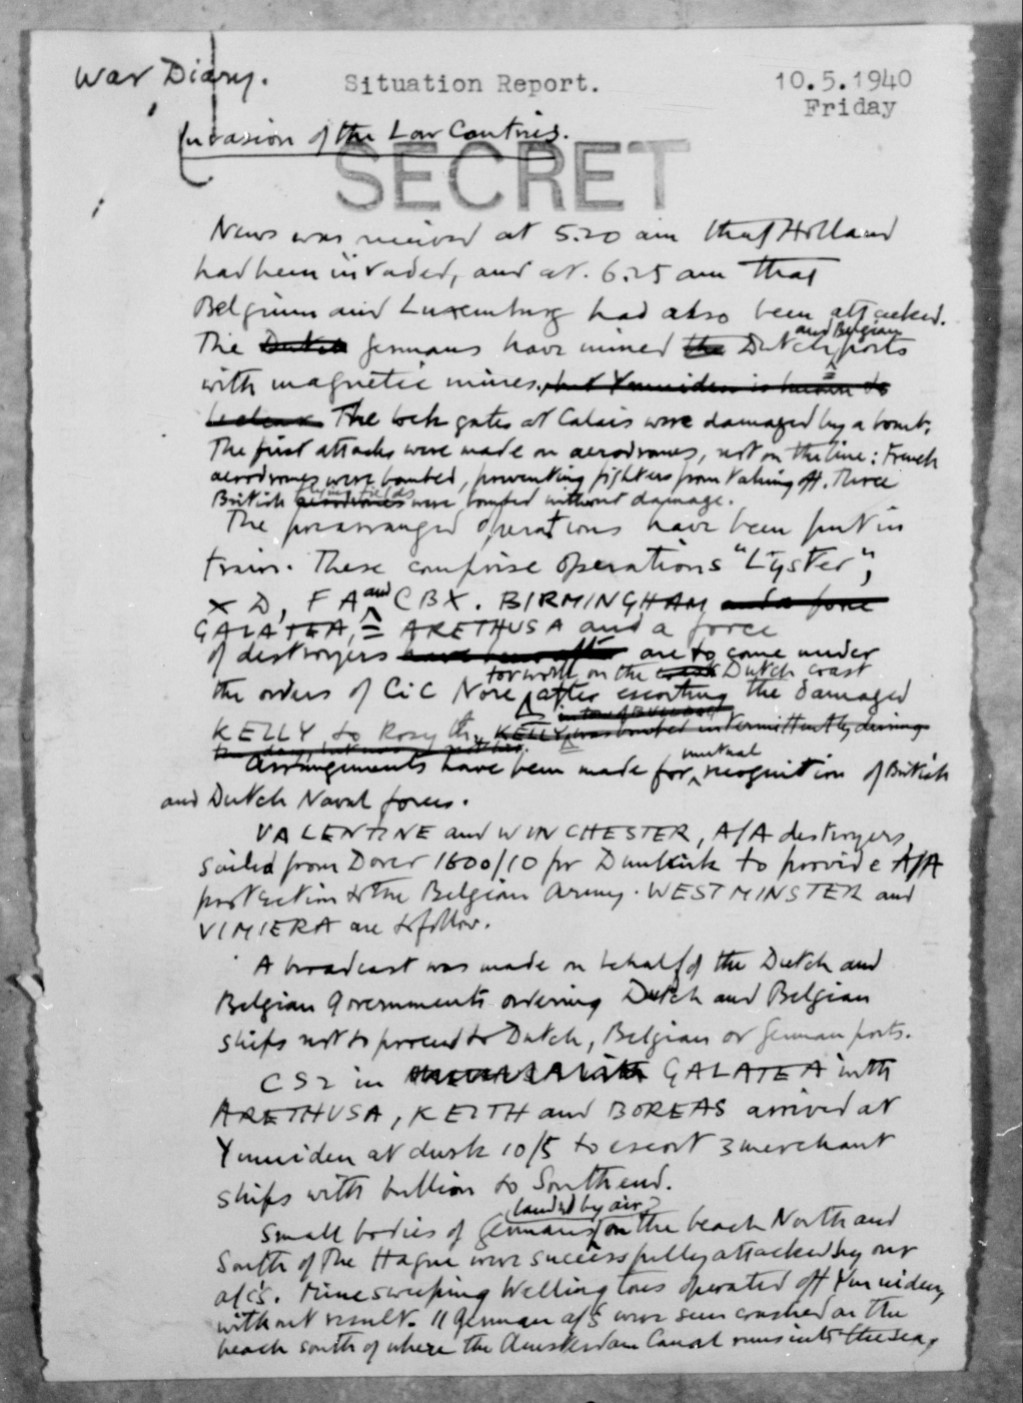 War Diary.
Situation Report.
10.5.1940
Friday
Invasion of the Low Countries.
SECRET
News was received at 5.20 am that Holland
had been invaded, and at 6.25 am that
Belgium and Luxemburg had also been attacked.
and Belgian
The Dutch Germans have mined the Dutch ports
with magnetic mines, but Ymuiden is known to
be clear. The lock gates at Calais were damaged by a bomb.
The first attacks were made on aerodromes, not on the line: French
aerodromes were bombed, preventing fighters from taking off. Three
flying fields
British aerodromes were bombed without damage.
The prearranged operations have been put in
train. These comprise operations "Lyster",
XD, FA and CBX. BIRMINGHAM and a force
GALATEA, ARETHUSA and a force
of destroyers are to come under
for work on the Dutch coast
the orders of CiC Nore after escorting the damaged
in tow of BULLDOG
KELLY to Rosyth, KELLY was bombed intermittently during
the day, but was not hit.
mutual
Arrangements have been made for recognition of British
and Dutch Naval forces.
VALENTINE and WINCHESTER, A/A destroyers,
sailed from Dover 1600/10 for Dunkirk to provide A/A
protection to the Belgian Army. WESTMINSTER and
VIMIERA are to follow.
A broadcast was made on behalf of the Dutch and
Belgian Governments ordering Dutch and Belgian
ships not to proceed to Dutch, Belgian or German ports.
CS2 in GALATEA with
ARETHUSA, KEITH and BOREAS arrived at
Ymuiden at dusk 10/5 to escort 3 merchant
ships with bullion to Southend.
landed by air
Small bodies of Germans on the beach North and
South of The Hague were successfully attacked by our
a/c's. Minesweeping Wellingtons operated off Ymuiden,
without result. 11 German a/c's were seen crashed on the
beach south of where the Amsterdam Canal runs into the sea,